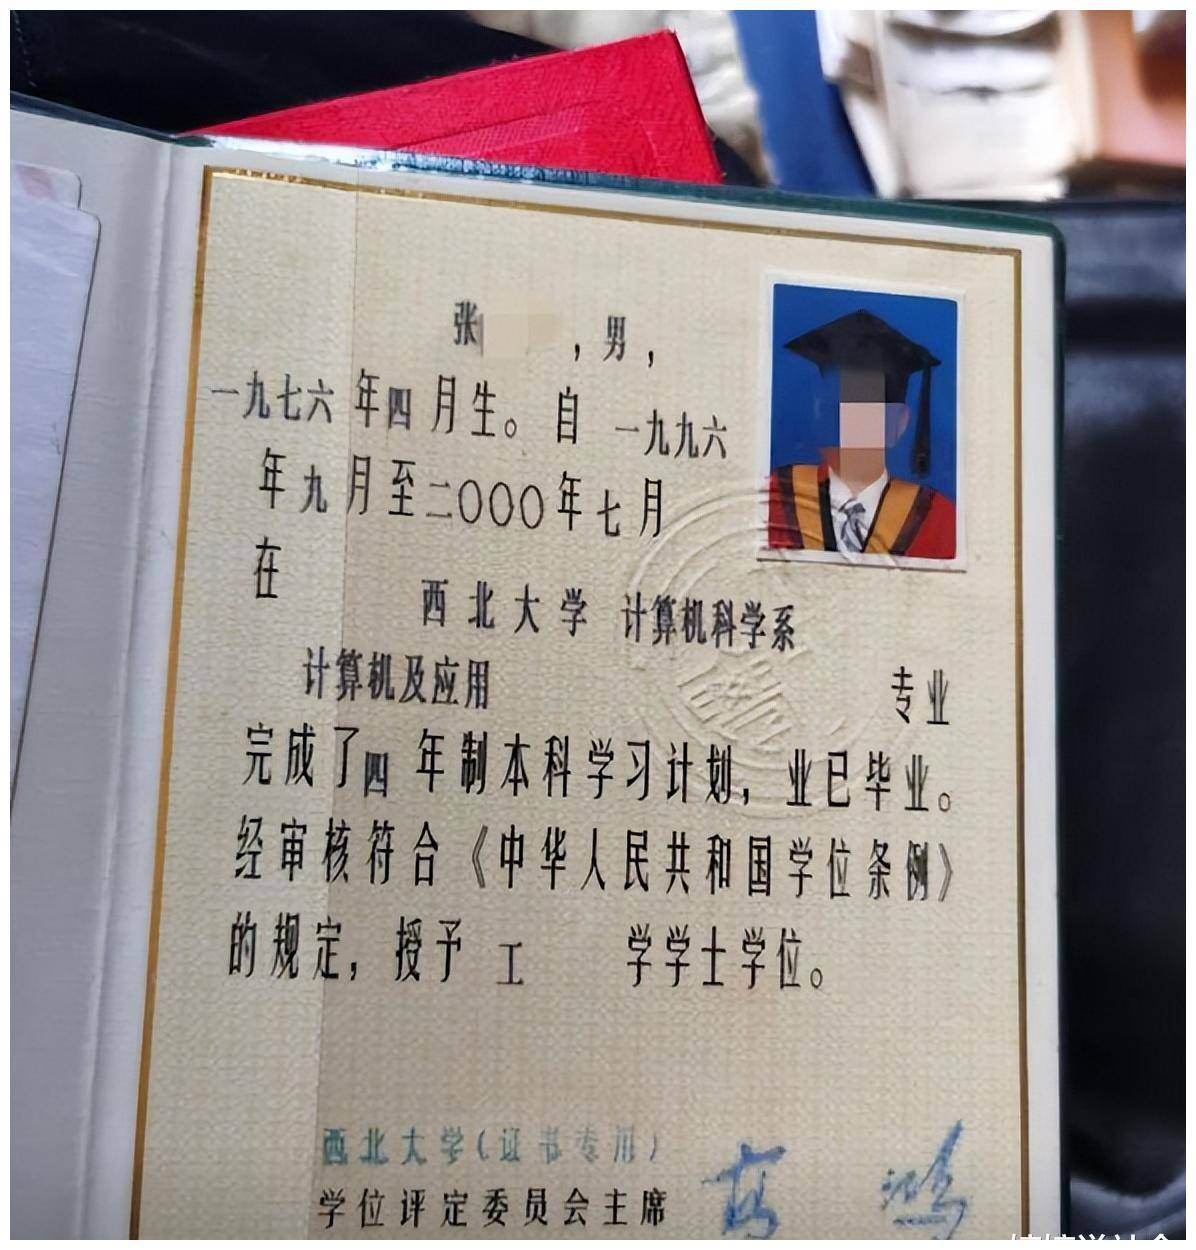 张 ，男，
一九七六年四月生。自一九九六
年九月至二〇〇〇年七月
在
西北大学 计算机科学系
计算机及应用 专业
完成了四年制本科学习计划，业已毕业。
经审核符合《中华人民共和国学位条例》
的规定，授予 工 学学士学位。
西北大学(证书专用)
学位评定委员会主席